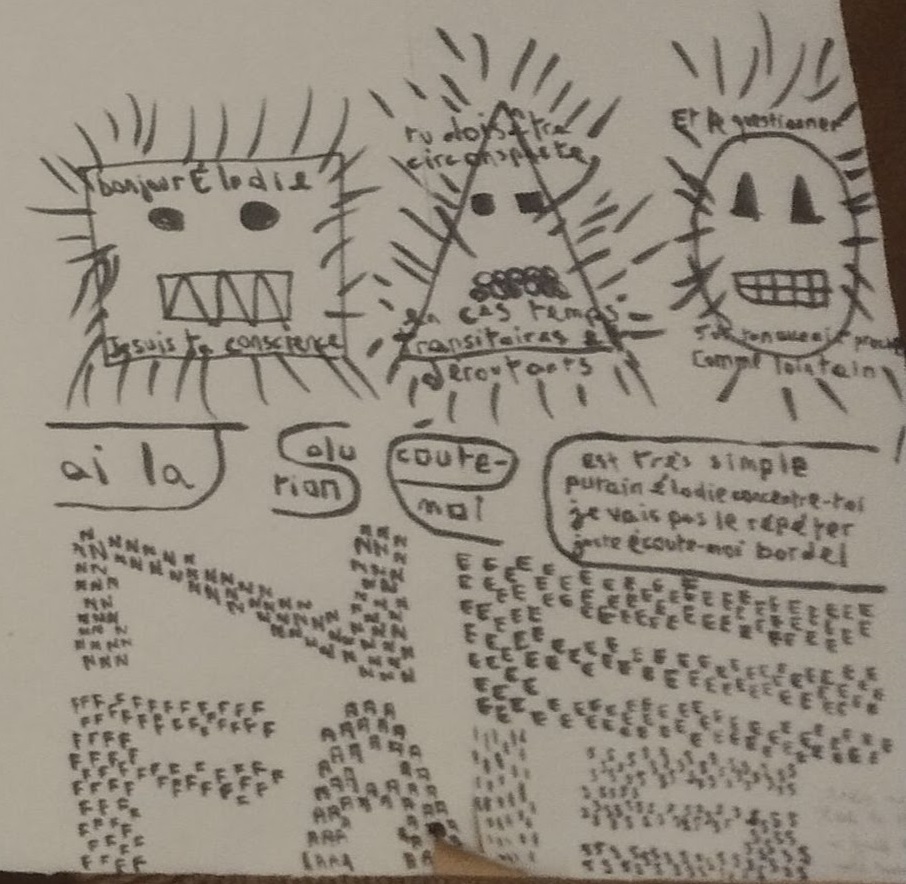 bonjour Élodie
Je suis ta conscience
tu dois être
circonspecte
en ces temps
transitoires et
déroutants
Et te questionner
Sur ton avenir proche
comme lointain
ai la
Solu
tion
écoute-
moi
est très simple
putain élodie concentre-toi
je vais pas le répéter
juste écoute-moi bordel
NE
FAIS